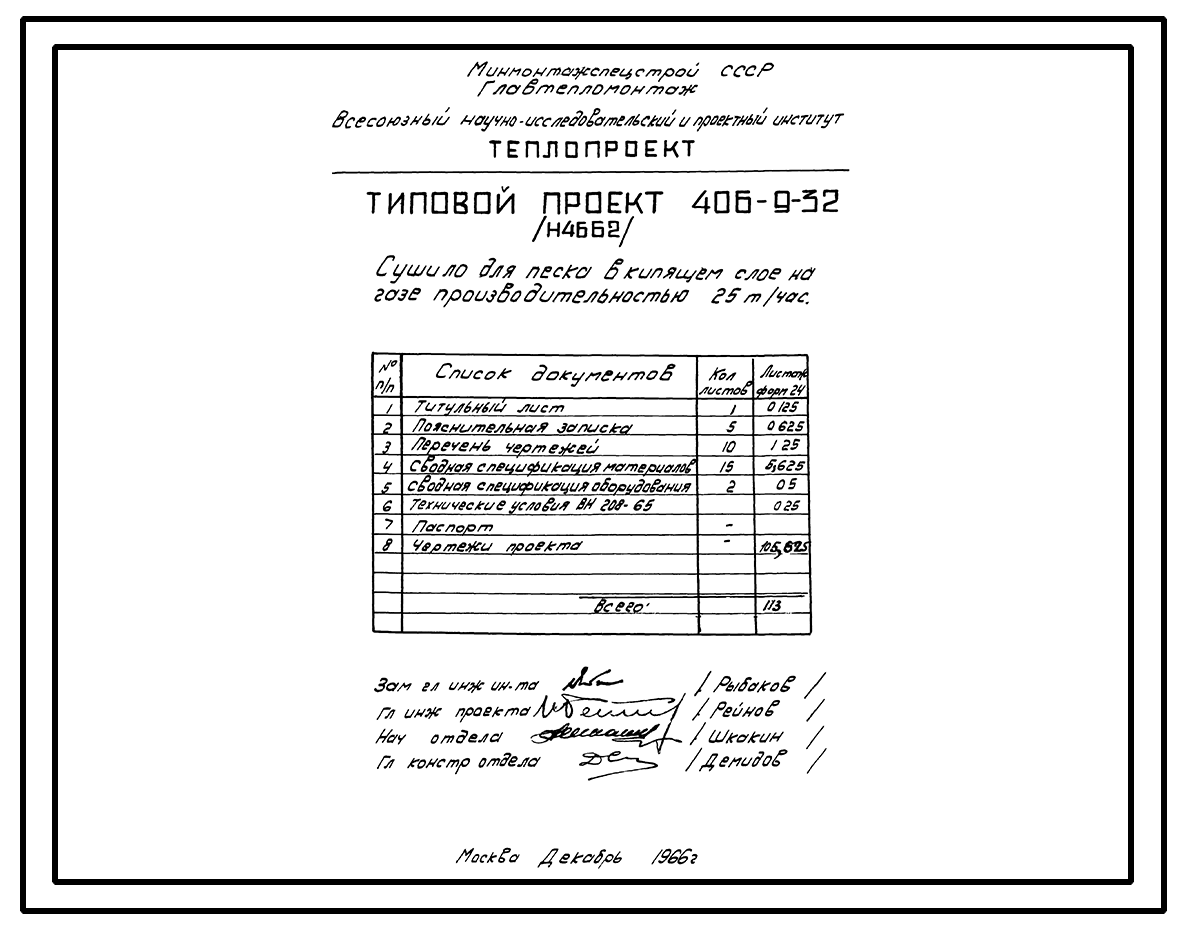 Минмонтажспецстрой СССР
Главтепломонтаж
Всесоюзный научно-исследовательский и проектный институт
ТЕПЛОПРОЕКТ
ТИПОВОЙ ПРОЕКТ 406-9-32
/Н4662/
Сушило для песка в кипящем слое на
газе производительностью 25 т/час.
№ п/п Список документов Кол листов Листаж форм 24
1 Титульный лист 1 0 125
2 Пояснительная записка 5 0 625
3 Перечень чертежей 10 1 25
4 Сводная спецификация материалов 15 5,625
5 Сводная спецификация оборудования 2 0 5
6 Технические условия ВН 208-65 0 25
7 Паспорт -
8 Чертежи проекта - 105,625
Всего: 113
Зам гл инж ин-та / Рыбаков /
Гл инж проекта / Рейнов /
Нач отдела / Шкакин /
Гл констр отдела / Демидов /
Москва Декабрь 1966г